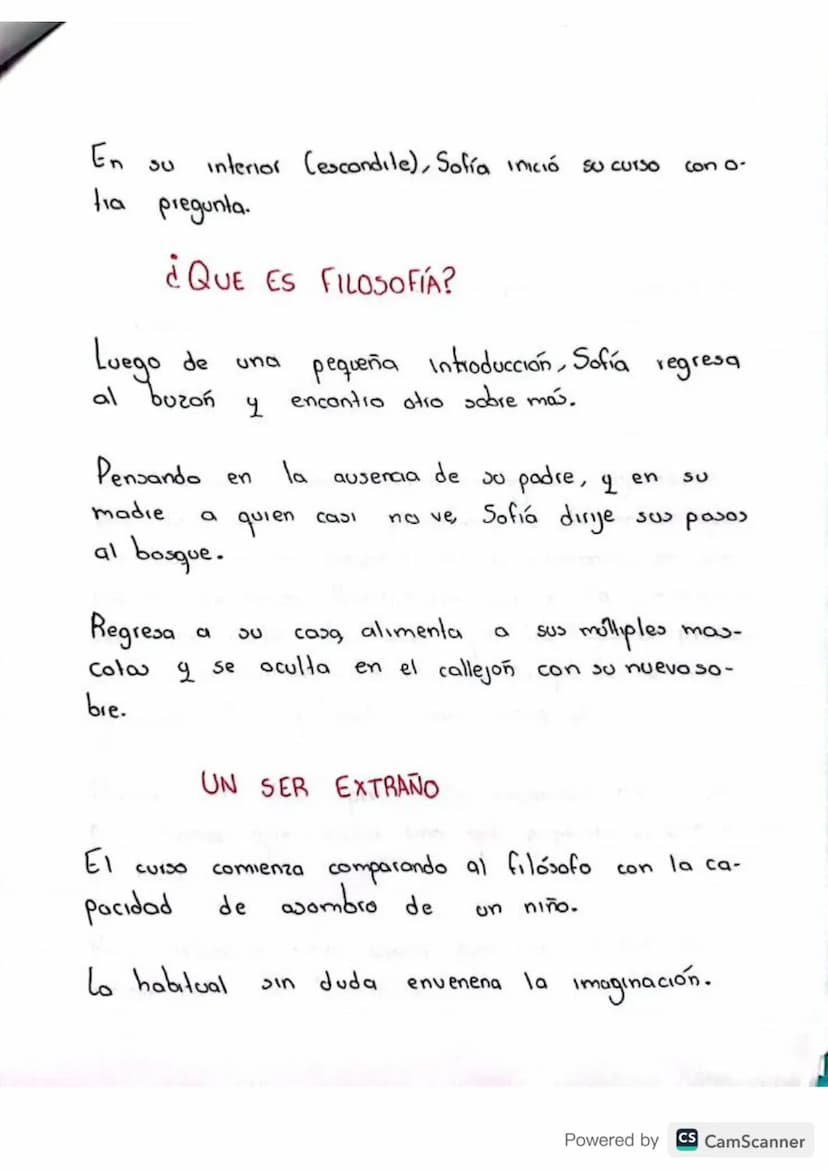 En su interior (escondite), Sofía inició su curso con o-
tra pregunta.
¿QUE ES FILOSOFÍA?
Luego de una pequeña introducción, Sofía regresa
al buzoń y encontro otro sobre más.
Pensando en la ausencia de su padre, y en su
madre a quien casi no ve, Sofiá dirije sus pasos
al bosque.
Regresa a su casa, alimenta a sus múltiples mas-
cotas y se oculta en el callejoń con su nuevo so-
bre.
UN SER EXTRAÑO
El curso comienza comparando al filósofo con la ca-
pacidad de asombro de un niño.
Lo habitual sin duda envenena la imaginación.
Powered by CS CamScanner